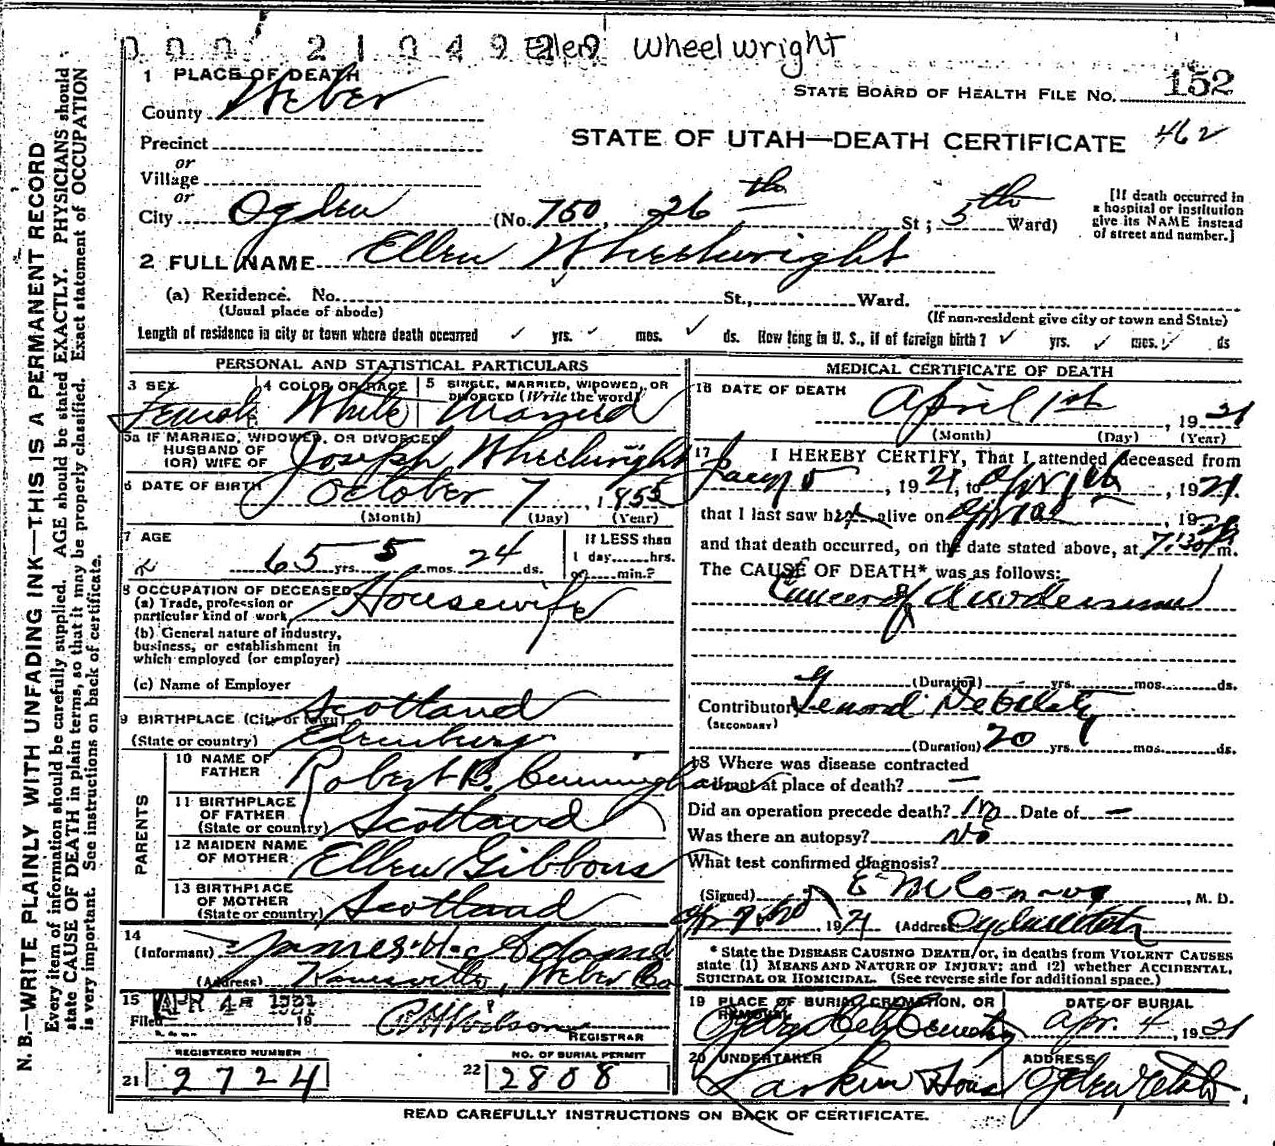 000 2104929 Ellen Wheelwright
1 PLACE OF DEATH
STATE BOARD OF HEALTH FILE NO. 152
County Weber
STATE OF UTAH—DEATH CERTIFICATE 462
Precinct
or
Village
or
City Ogden (No. 750, 26th St; 5th Ward)
[If death occurred in
a hospital or institution
give its NAME instead
of street and number.]
2 FULL NAME Ellen Wheelwright
(a) Residence. No. St., Ward.
(Usual place of abode) (If non-resident give city or town and State)
Length of residence is city or town where death occurred yrs. mos. ds. How long in U. S., if of foreign birth? yrs. mos. ds
PERSONAL AND STATISTICAL PARTICULARS
3 SEX 4 COLOR OR RACE 5 SINGLE, MARRIED, WIDOWED, OR
DIVORCED (Write the word)
Female White Married
5a IF MARRIED, WIDOWED, OR DIVORCED
HUSBAND OF
(OR) WIFE OF Joseph Wheelwright
6 DATE OF BIRTH October 7, 1855
(Month) (Day) (Year)
7 AGE If LESS than
1 day hrs.
65 yrs. 5 mos. 24 ds. or min.?
8 OCCUPATION OF DECEASED
(a) Trade, profession or
particular kind of work Housewife
(b) General nature of industry,
business, or establishment in
which employed (or employer)
(c) Name of Employer
9 BIRTHPLACE (City or town) Scotland
(State or country) Edenburg
PARENTS
10 NAME OF
FATHER Robert B. Cunningham
11 BIRTHPLACE
OF FATHER
(State or country) Scotland
12 MAIDEN NAME
OF MOTHER Ellen Gibbons
13 BIRTHPLACE
OF MOTHER
(State or country) Scotland
14
(Informant) James H.
(Address) Weber Co
15 APR 4 1921
Filed 19
REGISTRAR
REGISTERED NUMBER
21 2724
NO. OF BURIAL PERMIT
22 2808
MEDICAL CERTIFICATE OF DEATH
16 DATE OF DEATH
April 1st, 1921
(Month) (Day) (Year)
17 I HEREBY CERTIFY, That I attended deceased from
, 1921, to , 1921.
that I last saw her alive on , 19
and that death occurred, on the date stated above, at m.
The CAUSE OF DEATH* was as follows:
Cancer of duodenum
(Duration) yrs. mos. ds.
Contributory Debility
(SECONDARY)
(Duration) 20 yrs. mos. ds.
18 Where was disease contracted
if not at place of death? —
Did an operation precede death? no Date of —
Was there an autopsy? No
What test confirmed diagnosis?
(Signed) , M. D.
1921 (Address)
* State the DISEASE CAUSING DEATH, or, in deaths from VIOLENT CAUSES
state (1) MEANS AND NATURE OF INJURY; and (2) whether ACCIDENTAL,
SUICIDAL OR HOMICIDAL. (See reverse side for additional space.)
19 PLACE OF BURIAL, CREMATION, OR
REMOVAL
Ogden City Cemetery
DATE OF BURIAL
Apr. 4, 1921
20 UNDERTAKER
Larkin
ADDRESS
Ogden, Utah
READ CAREFULLY INSTRUCTIONS ON BACK OF CERTIFICATE.
N. B.—WRITE PLAINLY WITH UNFADING INK—THIS IS A PERMANENT RECORD
Every item of information should be carefully supplied. AGE should be stated EXACTLY. PHYSICIANS should
state CAUSE OF DEATH in plain terms, so that it may be properly classified. Exact statement of OCCUPATION
is very important. See instructions on back of certificate.